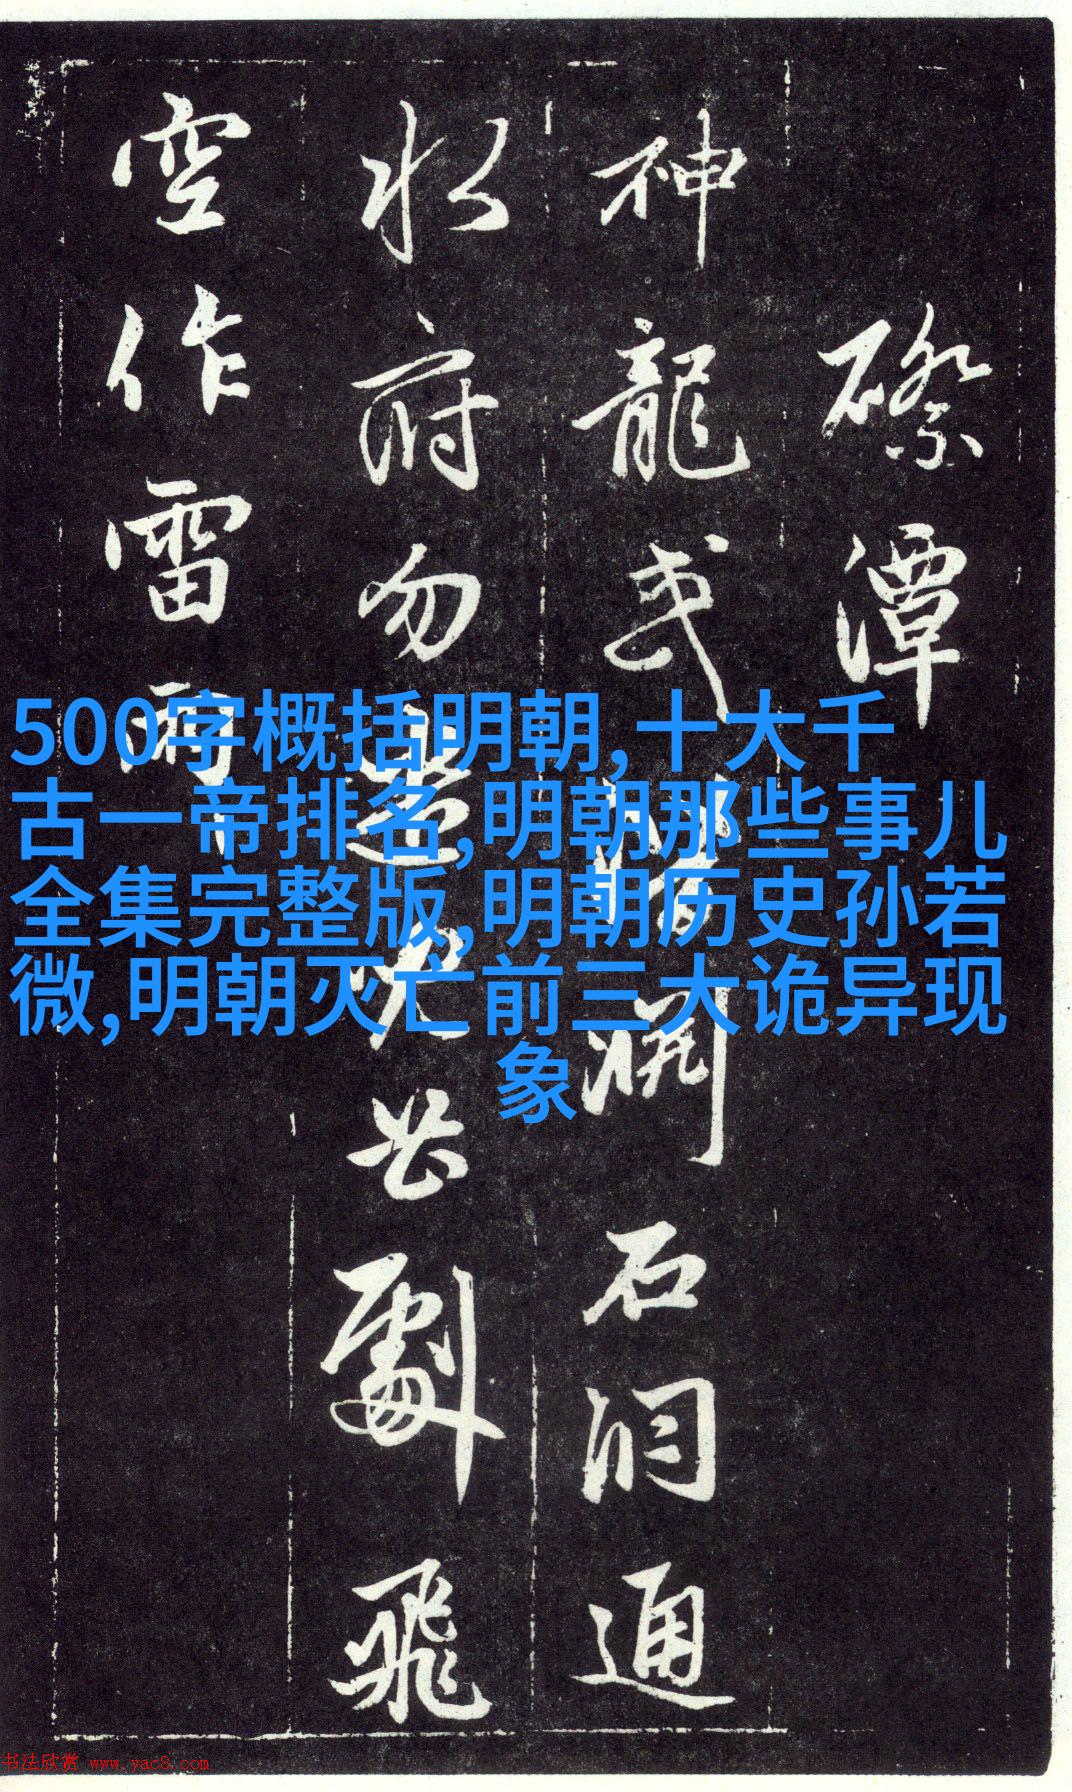 潭
神龍或淵石洞通
水府勿劇飛
空作雷雨
500字概括明朝,十大千
古一帝排名,明朝那些事儿
全集完整版,明朝历史孙若
微,明朝灭亡前三大诡异现
象
书法欣赏 www.yac8.com